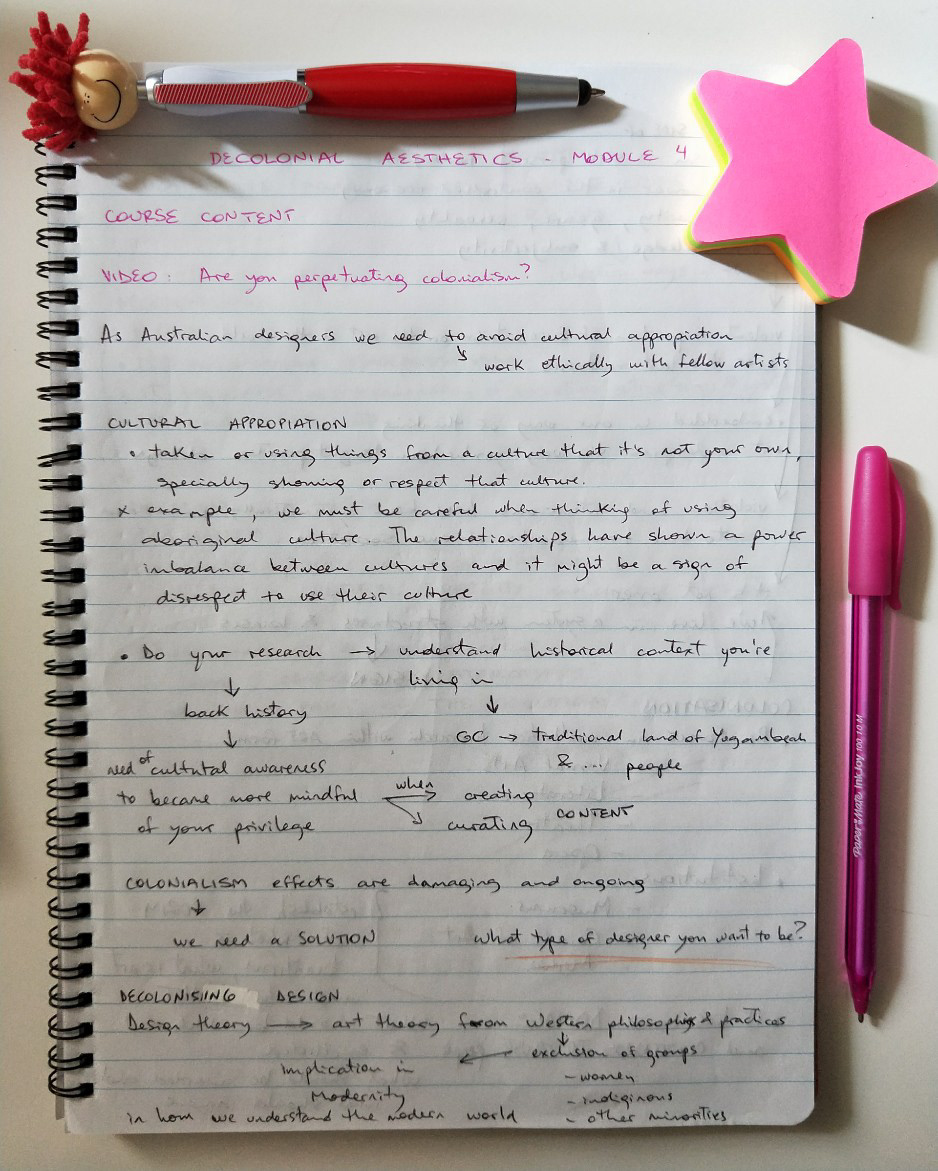 DECOLONIAL AESTHETICS - MODULE 4
COURSE CONTENT
VIDEO: Are you perpetuating colonialism?
As Australian designers we need to avoid cultural appropiation
↳ work ethically with fellow artists
CULTURAL APPROPIATION
• taken or using things from a culture that it's not your own,
specially showing or respect that culture.
x example, we must be careful when thinking of using
aboriginal culture. The relationships have shown a power
imbalance between cultures and it might be a sign of
disrespect to use their culture
• Do your research → understand historical context you're
living in
↓ back history
↓ GC → traditional land of Yogambeah
& ... people
need of cultural awareness
to became more mindful when → creating
of your privilege ↘ curating CONTENT
COLONIALISM effects are damaging and ongoing
↓
we need a SOLUTION what type of designer you want to be?
DECOLONISING DESIGN
Design theory → art theory from Western philosophies & practices
↓
implication in ← exclusion of groups
Modernity - women
- indiginous
in how we understand the modern world - other minorities
PaperMate InkJoy 100 1.0 M